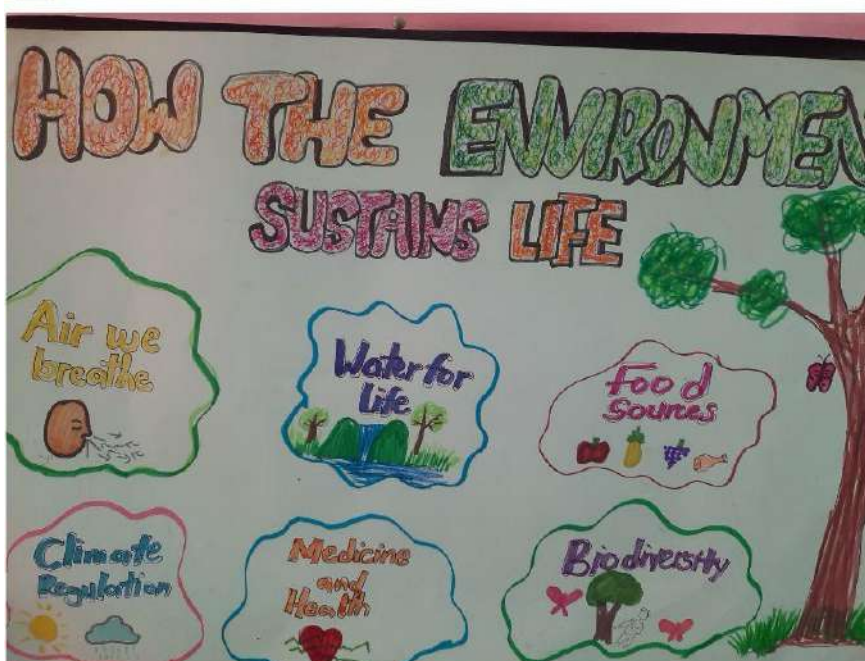 HOW THE ENVIRONMEN
SUSTAINS LIFE
Air we
breathe
Water for
Life
Food
Sources
Climate
Regulation
Medicine
and
Health
Biodiversity